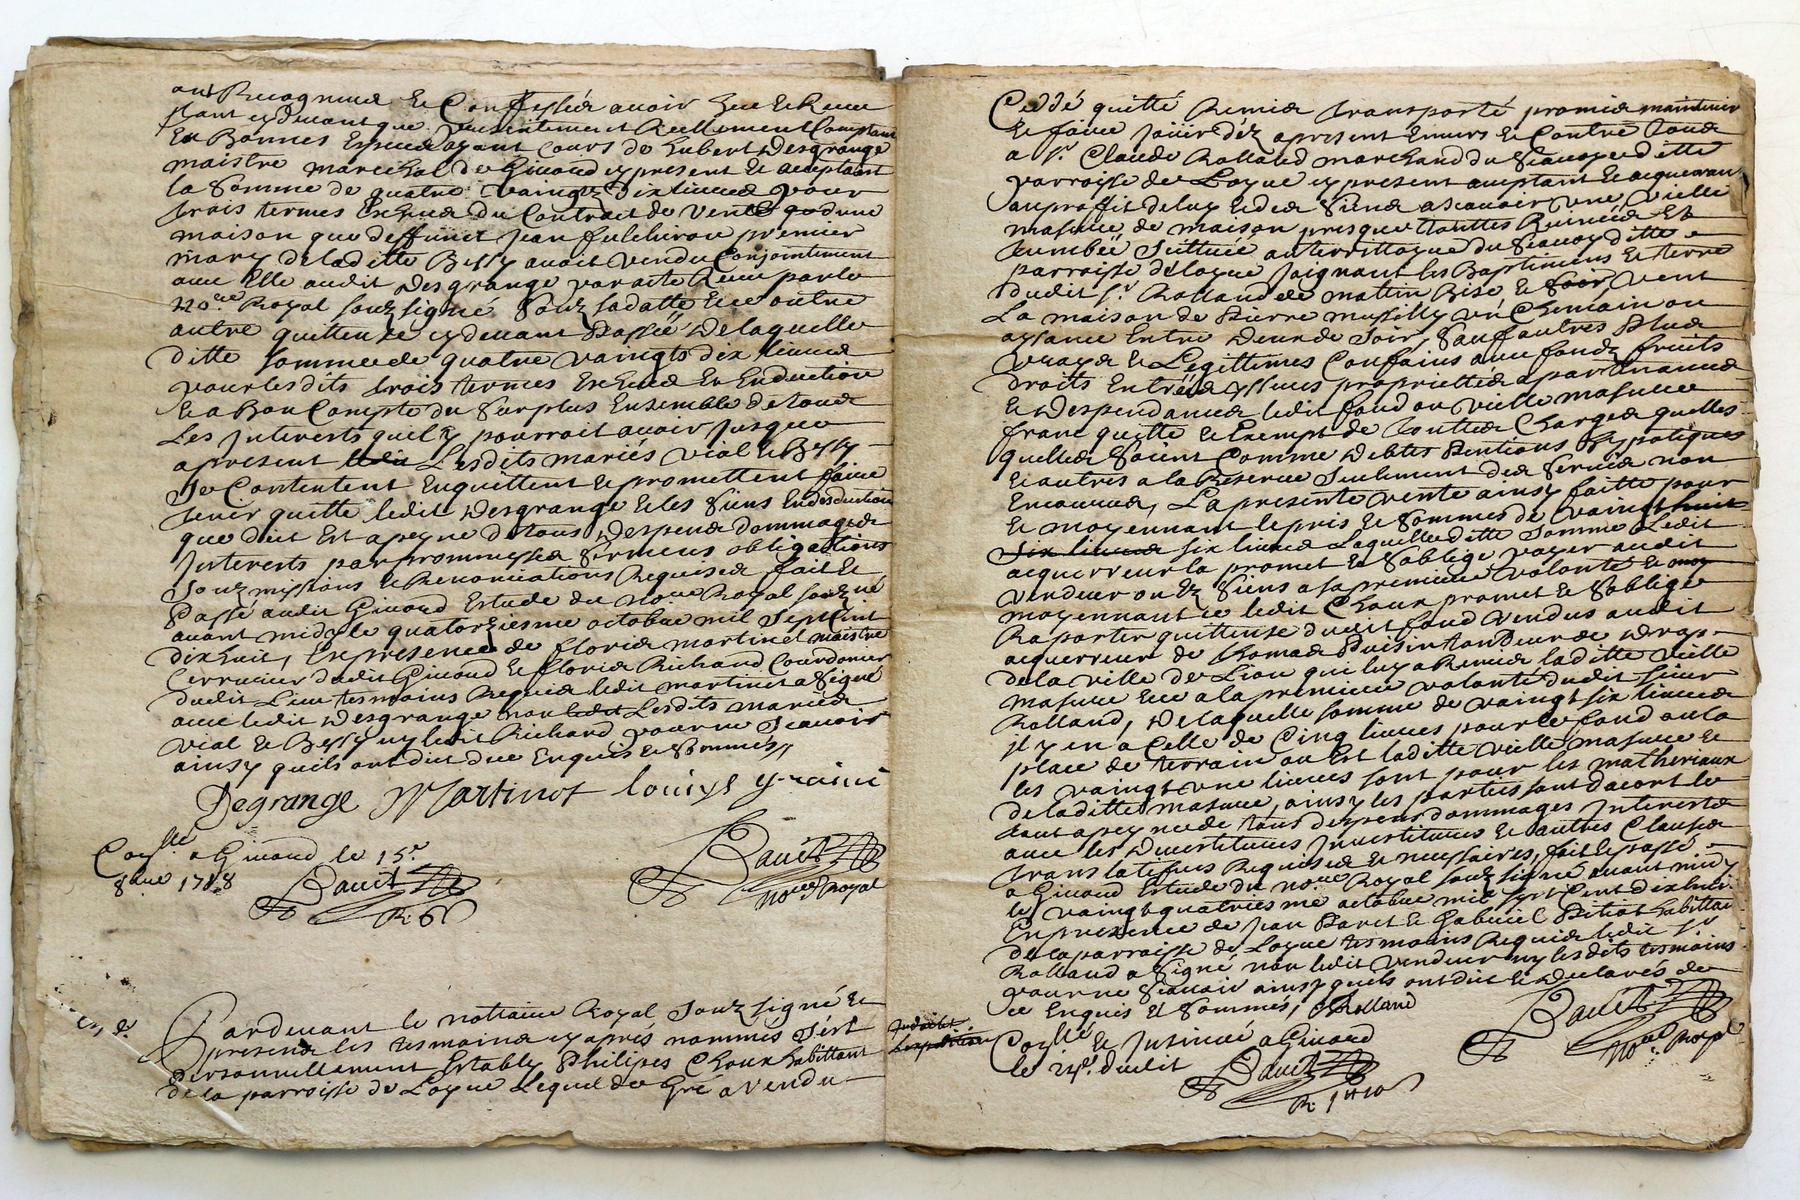 ont Recogneus Et Confessés avoir heu et Receu
tant cydevant que presentement Reellement Comptant
En Bonnes Especes ayant cours de hubert Desgrange
maistre marechal de Givord cy present et acceptant
la Somme de quatre vaingts dix livres pour
trois termes Escheus du Contrat de vente qd une
maison que deffunct Jean fulchiron premier
mary de laditte Bessy avoit vendu Conjointement
avec Elle audit Desgrange par acte Receu par le
no.re Royal soubzsigné Soubz sa datte Et ce outre
autre quittence cydevant Passée Delaquelle
ditte somme de quatre vaingts dix livres
pour lesdits trois termes Escheus En Enduction
Et a Bon Compte du Surplus Ensemble de tous
Les Interests quil y pourroit avoir Jusques
apresent ledit Lesdits mariés vial et Bessy
Se Contentent En quittent et promettent faire
tenir quitte ledit Desgrange et les Siens En deduction
que dict Est a peyne de tous Despens dommages
Interests par prommesses Sermens obligations
Soubzmissions et Renonciations Requises fait Et
Passé audit Givord Estude du no.re Royal soubzné
avant midy le quatorziesme octobre mil Sept Cent
dix huit, En presence de floris martinet maistre
Serrurier dudit Givord Et floris Richard Courdonier
dudit Lieu tesmoins Requis ledit martinet a Signé
avec ledit Desgrange non ledit Lesdits mariés
vial Et Bessy ny ledit Richard pour ne Scavoir
ainsy quils ont dict de ce Enquis et Sommés //
Degrange Martinot louise
Con.llé a Givord le 15.e
8bre 1718
R 6s
no.re Royal
Pardevant le nottaire Royal Soubzsigné Et
presens les tesmoins cy après nommés Sest
Personnellement Estably Philipes Choux habittant
de la parroisse de Loyre Lequel de Gré a vendu
Ceddé quitté Remis transporté promis maintenir
Et faire joüir déz apresent Envers Et Contre tous
a S.r Claude Rolland marchand du
parroisse de Loyre cy present acceptant Et acquerant
au proffit deluy Et des Siens a scavoir une vielle
masure de maison presque touttes Ruinée Et
tumbée Scittuée au territtoyre du ditte
parroisse de Loyre Joignant les Baptimens Et terre
dudit S.r Rolland de mattin Bise Et Soir, vent
La maison de Pierre un Chemain ou
aysance Entre deux de Soir, Sauf autres Plus
vrays Et Legittimes Confains avec fonds fruits
droits Entrées yssues proprietés apartenances
Et Despendances ledit fond ou vielle masure
franc quitte Et Exempt de touttes Charges quelles
quelles Soient Comme Debtes Pentions Hypoteques
Et autres a la Reserve Seulement des Servis non
Encourus, La presente vente ainsy faitte pour
Et moyennant le pris Et Sommes de vaingt huit
Six livres six livres Laquelle ditte Somme Ledit
acquerreur la promet Et Soblige payer audit
vendeur ou és Siens a sa premiere volonté Et moy
moyennant ce ledit Choux promet Et Soblige
Raporter quittense dudit fond vendus audit
acquerreur de Thomas
de la ville de Lion qui luy a Remis laditte vielle
masure Et ce a la premiere volonté dudit sieur
Rolland, Delaquelle somme de vaingt six livres
il y en a Celle de Cinq livres pour le fond ou la
place de terrain ou Est laditte vielle masure Et
les vaingt une livres sont pour les matheriaux
de laditte masure, ainsy les parties sont dacort le
tout a peyne de tous despens dommages Interests
avec les Devestitures Investitures Et autres Clauses
translatifves Requises Et necessaires, fait Et passé
a Givord Estude du no.re Royal soubz signé avant midy
le vaingt quatriesme octobre mil sept Cent dix huit
En presence de Jean Et Gabriel habittans
de la parroisse de Loyre tesmoins Requis ledit S.r
Rolland a Signé non ledit vendeur ny lesdits tesmoins
pour ne Scavoir ainsy quils ont dit Et Declarés de
ce Enquis Et Sommés, CRolland
Con.llé Et Insinué a Givord
le 24e. dudit
R 1tt 10s
no.re Royal